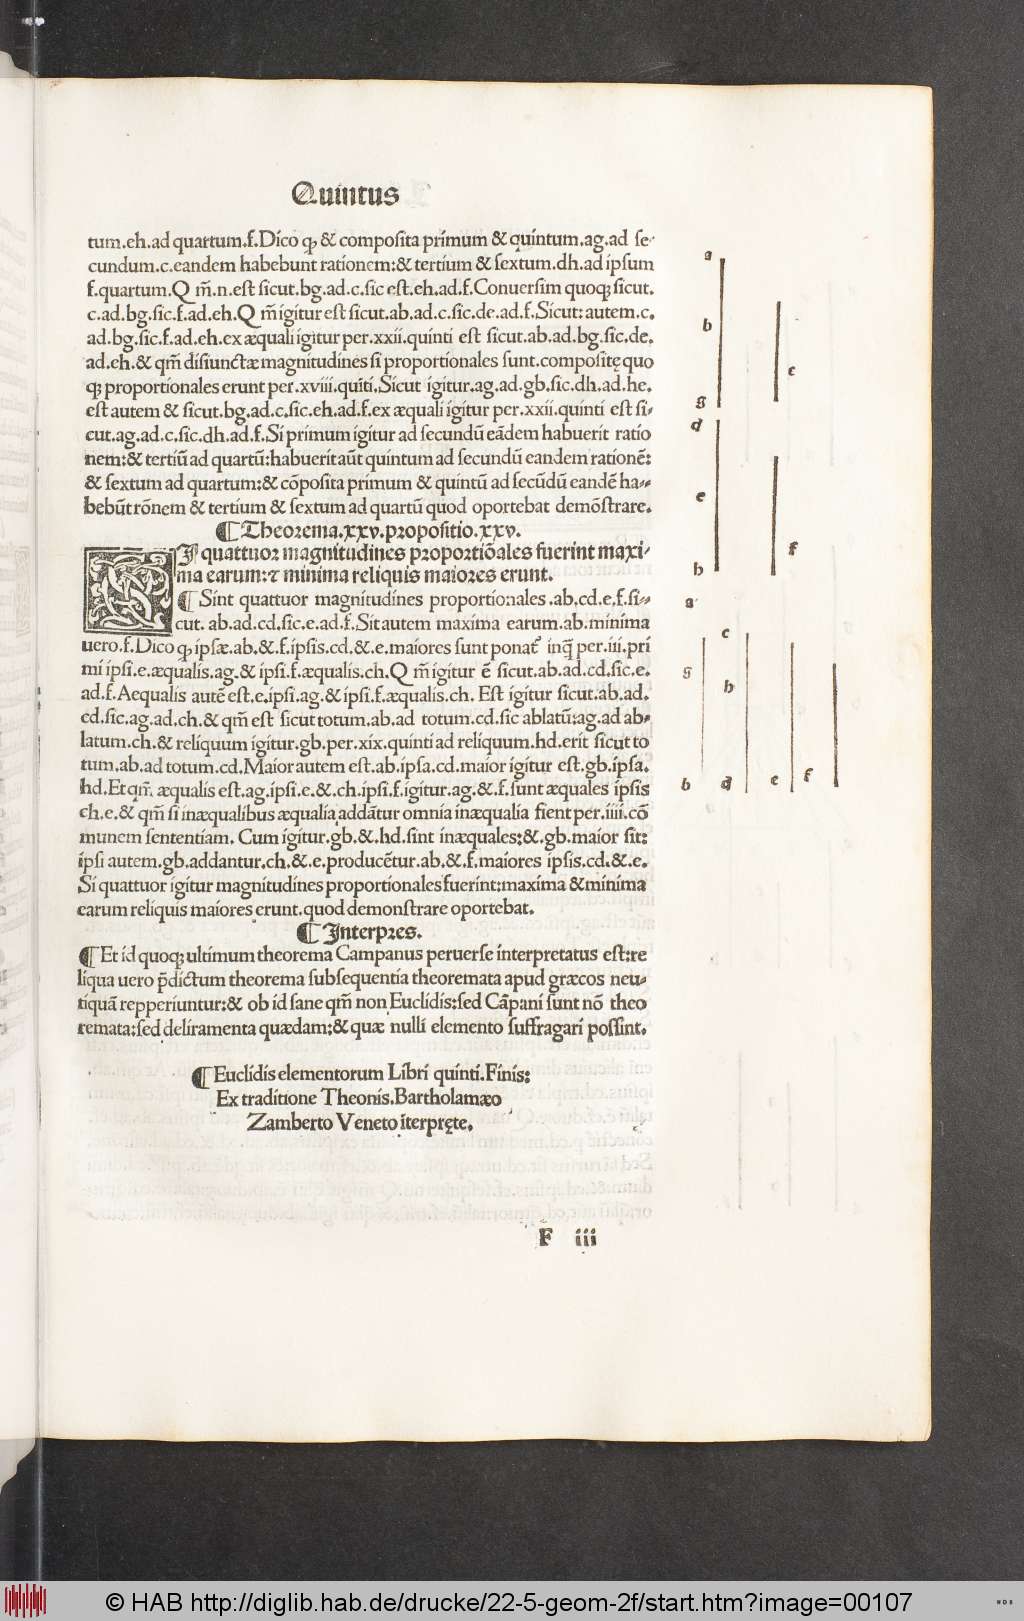 Quintus
tum.eh.ad quartum.f.Dico ꝙ & composita primum & quintum.ag.ad se-
cundum.c.eandem habebunt rationem:& tertium & sextum.dh.ad ipsum
f.quartum.Qm̄.n.est sicut.bg.ad.c.sic est.eh.ad.f.Conuersim quoqꝫ sicut.
c.ad.bg.sic.f.ad.eh.Qm̄ igitur est sicut.ab.ad.c.sic.de.ad.f.Sicut: autem.c.
ad.bg.sic.f.ad.eh.ex æquali igitur per.xxii.quinti est sicut.ab.ad.bg.sic.de.
ad.eh.& qm̄ disiunctæ magnitudines si proportionales sunt.compositę quo
qꝫ proportionales erunt per.xviii.quīti.Sicut igitur.ag.ad.gb.sic.dh.ad.he.
est autem & sicut.bg.ad.c.sic.eh.ad.f.ex æquali igitur per.xxii.quinti est si-
cut.ag.ad.c.sic.dh.ad.f.Si primum igitur ad secundū eādem habuerit ratio
nem:& tertiū ad quartū:habuerit aūt quintum ad secundū eandem rationē:
& sextum ad quartum:& cōposita primum & quintū ad secūdū eandē ha-
bebūt rōnem & tertium & sextum ad quartū quod oportebat demōstrare.
¶Theorema.xxv.propositio.xxv.
SI quattuor magnitudines proportiōales fuerint maxi-
ma earum:⁊ minima reliquis maiores erunt.
¶Sint quattuor magnitudines proportionales.ab.cd.e.f.si-
cut. ab.ad.cd.sic.e.ad.f.Sit autem maxima earum.ab.minima
uero.f.Dico ꝙ ipsæ.ab.& f.ipsis.cd.& e.maiores sunt ponat᷑ inq̄ per.iii.pri
mi ipsi.e.æqualis.ag.& ipsi.f.æqualis.ch.Qm̄ igitur ē sicut.ab.ad.cd.sic.e.
ad.f.Aequalis autē est.e.ipsi.ag.& ipsi.f.æqualis.ch. Est igitur sicut.ab.ad.
cd.sic.ag.ad.ch.& qm̄ est sicut totum.ab.ad totum.cd.sic ablatū:ag.ad ab-
latum.ch.& reliquum igitur.gb.per.xix.quinti ad reliquum.hd.erit sicut to
tum.ab.ad totum.cd.Maior autem est.ab.ipsa.cd.maior igitur est.gb.ipsa.
hd.Et qm̄. æqualis est.ag.ipsi.e.&.ch.ipsi.f.igitur.ag.&.f.sunt æquales ipsis
ch.e.& qm̄ si inæqualibus æqualia addātur omnia inæqualia fient per.iiii.cō
munem sententiam. Cum igitur.gb.&.hd.sint inæquales:&.gb.maior sit:
ipsi autem.gb.addantur.ch.&.e.producētur.ab.&.f.maiores ipsis.cd.&.e.
Si quattuor igitur magnitudines proportionales fuerint:maxima & minima
earum reliquis maiores erunt.quod demonstrare oportebat.
¶Interpres.
¶Et id quoqꝫ ultimum theorema Campanus peruerse interpretatus est:re
liqua uero p̄dictum theorema subsequentia theoremata apud græcos neu-
tiquā repperiuntur:& ob id sane qm̄ non Euclidis:sed Cāpani sunt nō theo
remata:sed deliramenta quædam:& quæ nulli elemento suffragari possint.
¶Euclidis elementorum Libri quinti.Finis:
Ex traditione Theonis.Bartholamæo
Zamberto Veneto īterpręte.
F iii
a
b
c
g
d
e
f
h
a
c
g
h
b
d
e
f
© HAB http://diglib.hab.de/drucke/22-5-geom-2f/start.htm?image=00107